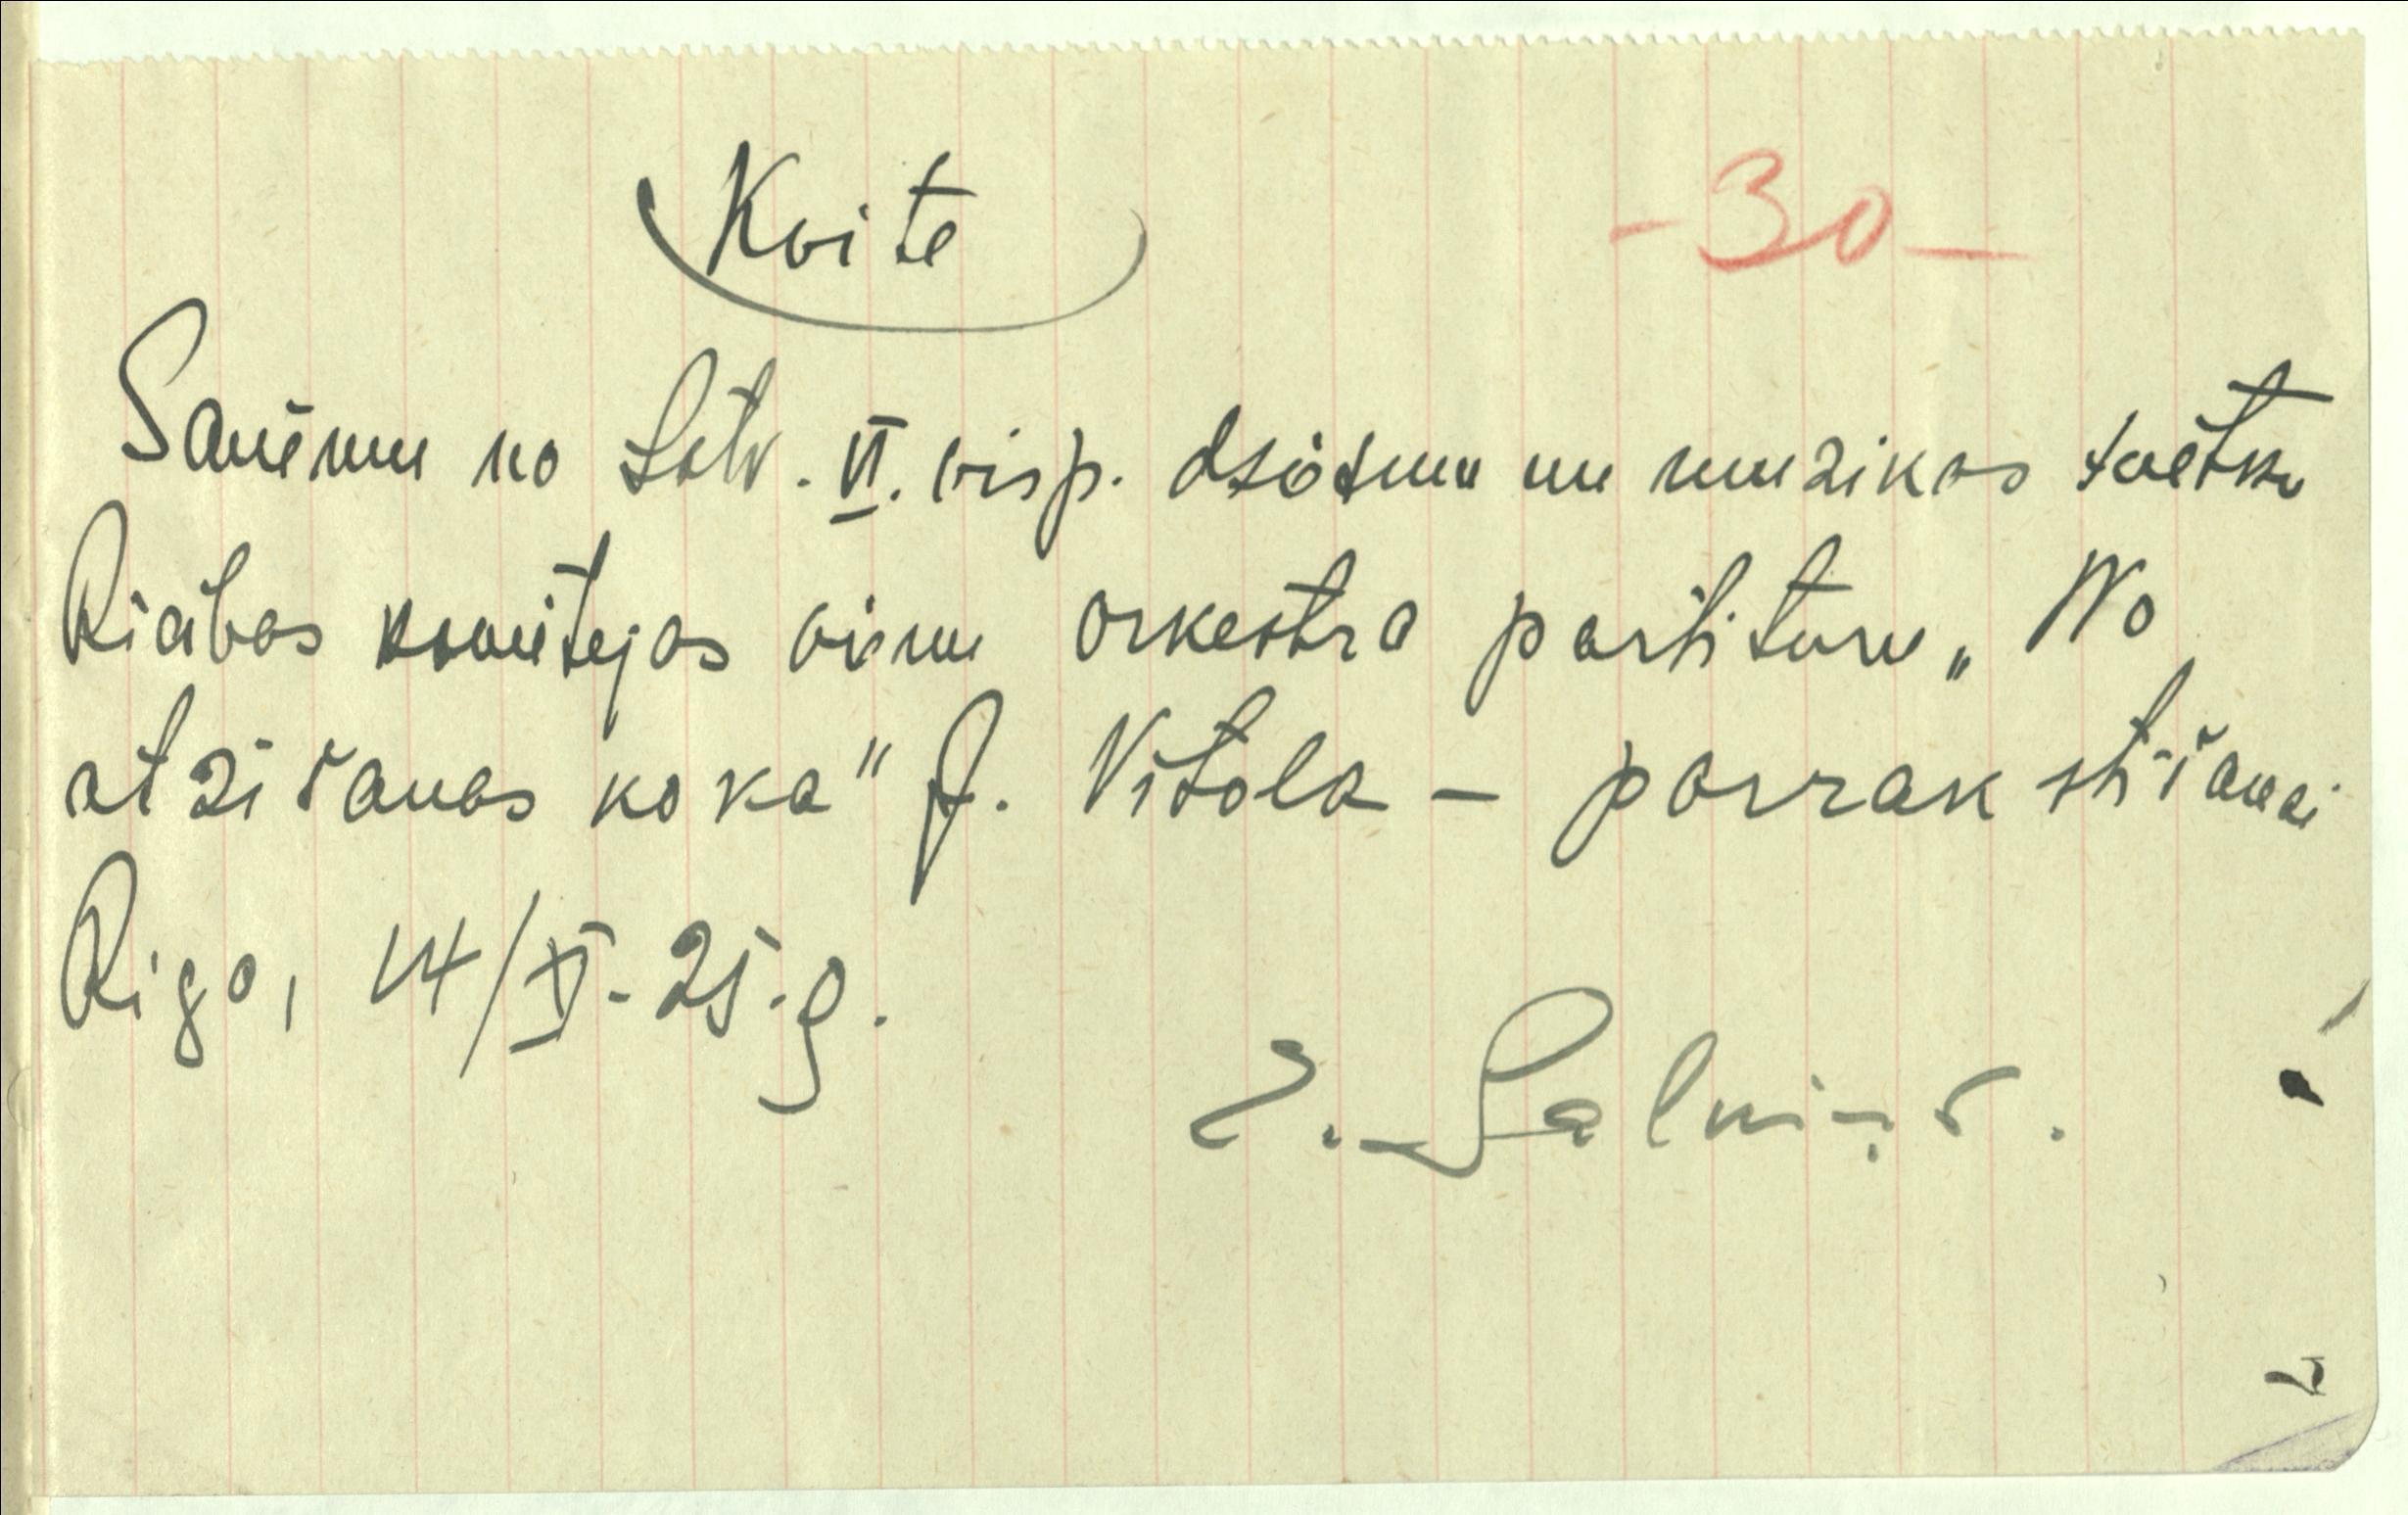 Kvite
-30-
Saņēmu no Latv. VI. visp. dziesmu un muzikas svētku
Rīcibas komitejas vienu orkestra partituru „No
atzišanas koka" J. Vītola - parrakstīšanai
Rigā, 14/XI-25.g.
E. Salmiņš.